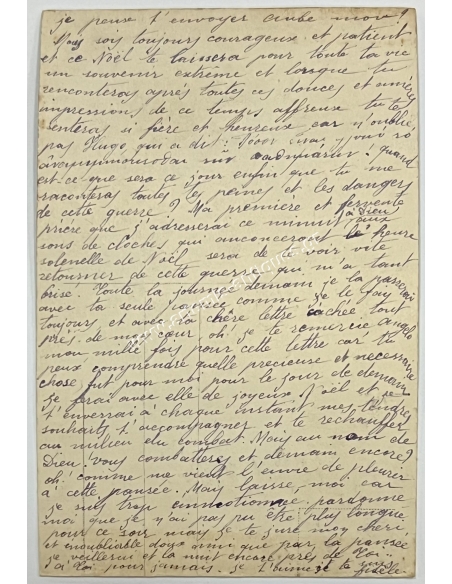 je peuse t'envoyer aube mon!
Mais sois toujours courageux et patient
et ce Noël te laissera pour toute ta vie
un souvenir extrême et lorsque tu
rencontreras après toutes ces douces et amères
impressions de ce temps affreux tu te
senteras si fière et heureux car n'oublie
pas Hugo qui a dit:
quand
est-ce que sera ce jour enfin que tu me
raconteras toutes les peines et les dangers
de cette guerre? Ma première et fervente
prière que j'adresserai ce minuit à Dieu
sons de cloches qui anonceront l'heure
solenelle de Noël sera de voir vite
retourner de cette guerre qui m'a tant
brisé. Toute la journée demain je la passerai
avec ta seule pansée comme je le fais
toujours et avec ta chère lettre cachée tout
près de mon cœur oh! je te remercie angelo
mon mille fois pour cette lettre car tu
peux comprendre quelle precieuse et necessaire
chose fut pour moi pour le jour de demain
je ferai avec elle de joyeux Noël et je
t'enverrai a chaque instant mes tendres
souhaits t'accompagner et te rechauffer
au milieu du combat. Mais au nom de
Dieu! vous combatterez et demain encore?
oh! comme me vient l'envie de pleurir
à cette pansée. Mais laisse moi car
je suis trop emotionnée pardonne
moi que je n'ai pas pu être plus longue
pour ce soir mais je te jure mon cheri
et inoubliable doux ami que par la pansée
je veillerai et la nuit encore près de Toi
à Toi pour jamais. je t'aime je te suis
fidèle